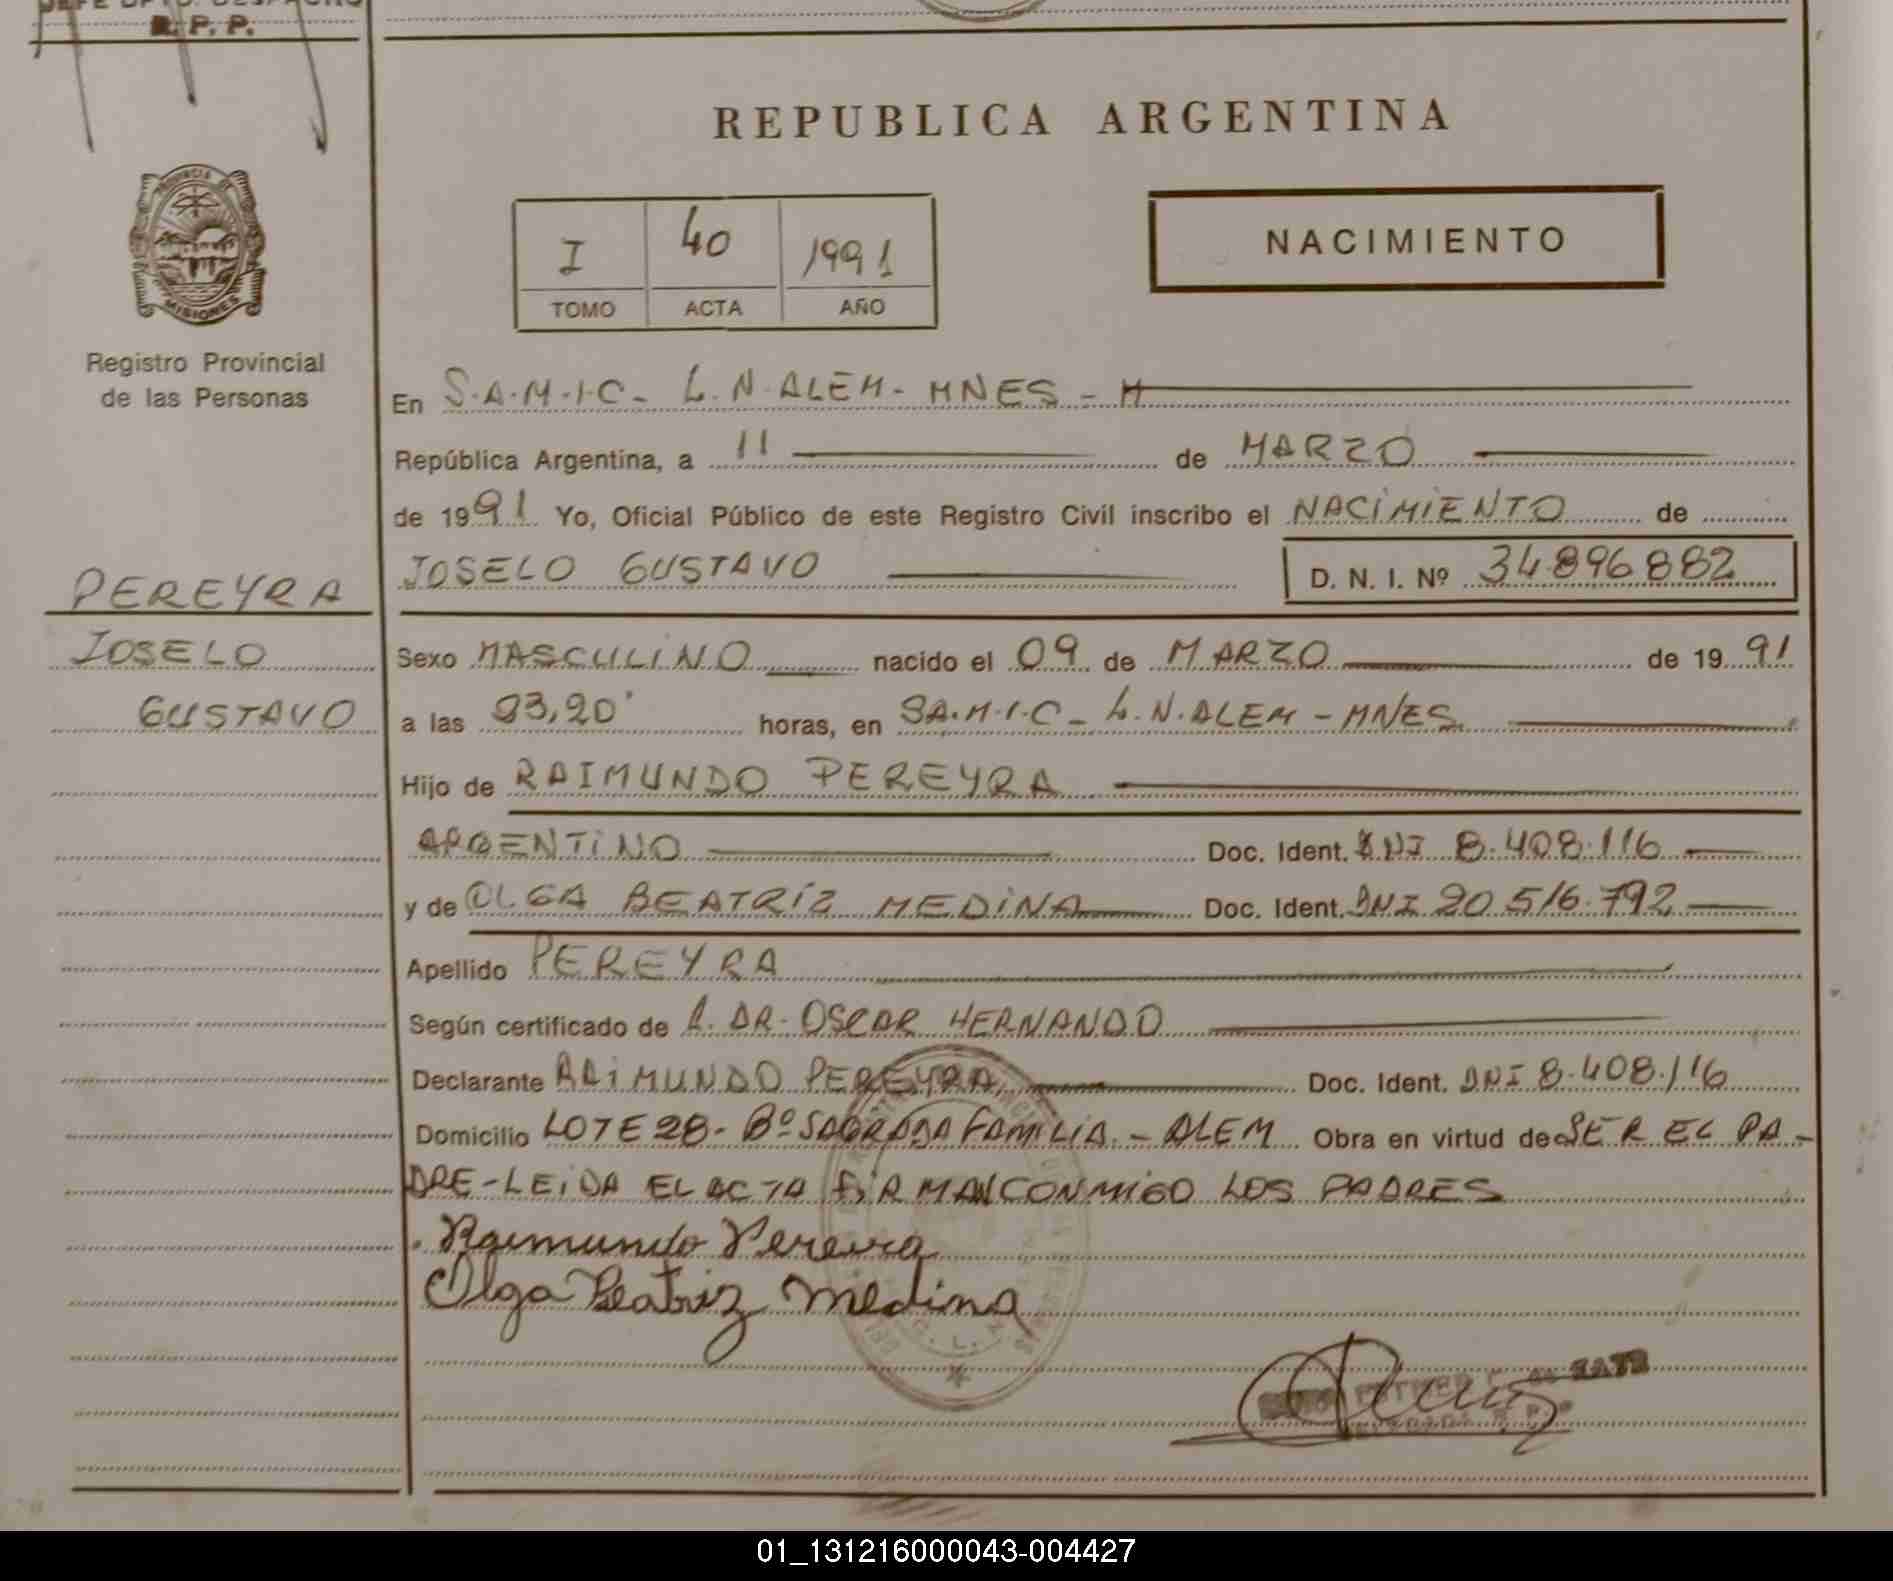 JEFE DPTO. DESPACHO
R. P. P.
REPUBLICA ARGENTINA
PROVINCIA DE
MISIONES
Registro Provincial
de las Personas
I 40 1991
TOMO ACTA AÑO
NACIMIENTO
En S.A.M.I.C- L.N.ALEM- MNES - M
República Argentina, a 11 de MARZO
de 1991 Yo, Oficial Público de este Registro Civil inscribo el NACIMIENTO de
JOSELO GUSTAVO D. N. I. Nº 34896882
PEREYRA
JOSELO
GUSTAVO
Sexo MASCULINO nacido el 09 de MARZO de 1991
a las 23,20' horas, en SA.M.I.C- L.N.ALEM - MNES
Hijo de RAIMUNDO PEREYRA
ARGENTINO Doc. Ident. DNI 8.408.116
y de OLGA BEATRIZ MEDINA Doc. Ident. DNI 20.516.792
Apellido PEREYRA
Según certificado de DR. OSCAR HERNANDO
Declarante RAIMUNDO PEREYRA Doc. Ident. DNI 8.408.116
Domicilio LOTE 28- Bº SAGRADA FAMILIA - ALEM Obra en virtud de SER EL PA-
DRE-LEIDA EL ACTA FIRMAN CONMIGO LOS PADRES
Raimundo Pereira
Olga Beatriz Medina
01_131216000043-004427